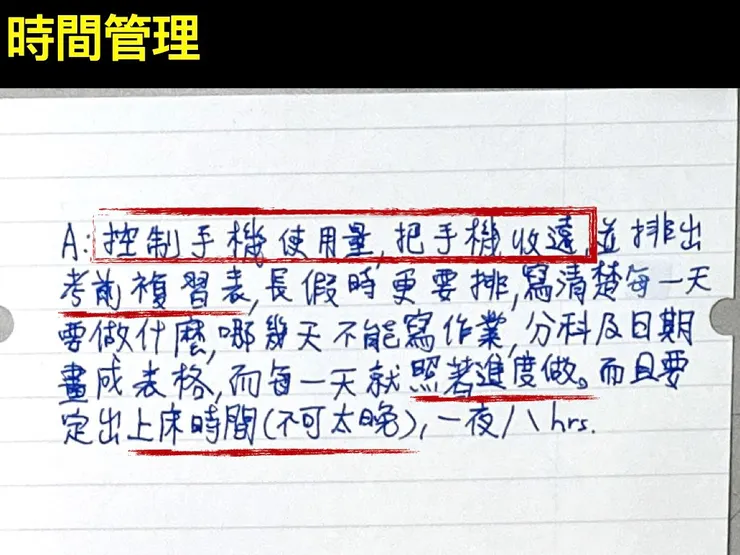 時間管理
A: 控制手機使用量, 把手機收遠, 並排出
考前複習表, 長假時更要排, 寫清楚每一天
要做什麼, 哪幾天不能寫作業, 分科及日期
畫成表格, 而每一天就照著進度做。而且要
定出上床時間(不可太晚), 一夜八hrs.